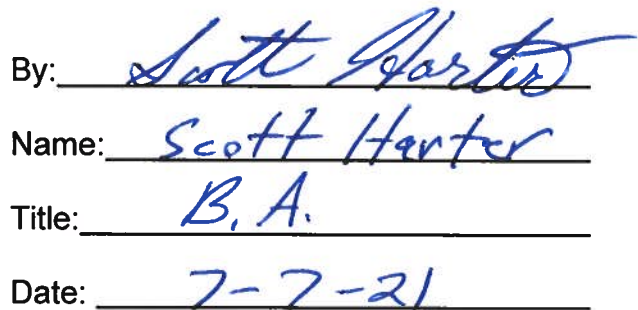 By: Scott Harter
Name: Scott Harter
Title: B. A.
Date: 7-7-21